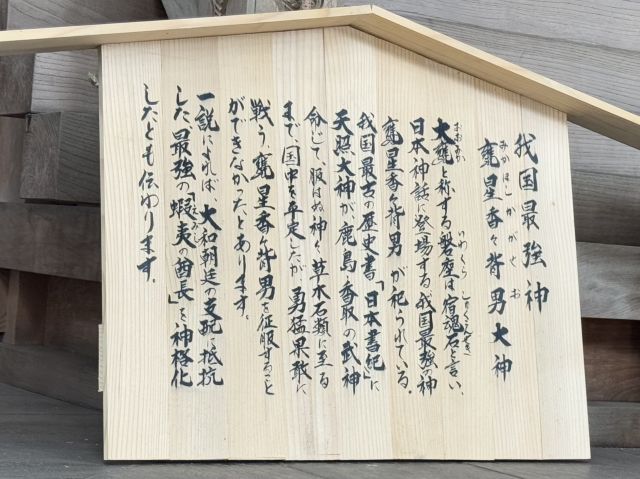 我国最強神
甕星香々背男大神
みかほしかがせお
大甕と称する磐座は宿魂石と言い、
おおみか いわくら しゅくこんせき
日本神話に登場する我国最強の神
甕星香々背男が祀られている。
我国最古の歴史書「日本書紀」に
天照大神が、鹿島香取の武神
命じて、服はぬ神々草木石類に至る
まで、国中を平定したが勇猛果敢に
戦う、甕星香々背男を征服すること
ができなかったとあります。
一説によれば、大和朝廷の支配に抵抗
した最強の「蝦夷の酋長」を神格化
したとも伝わります。